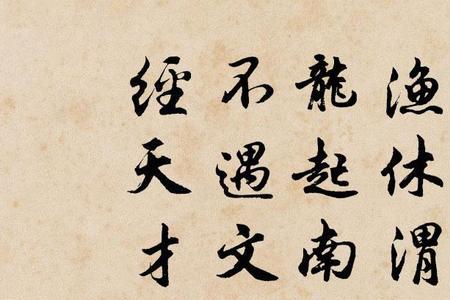 漁休渭
龍起南
不遇文
經天才